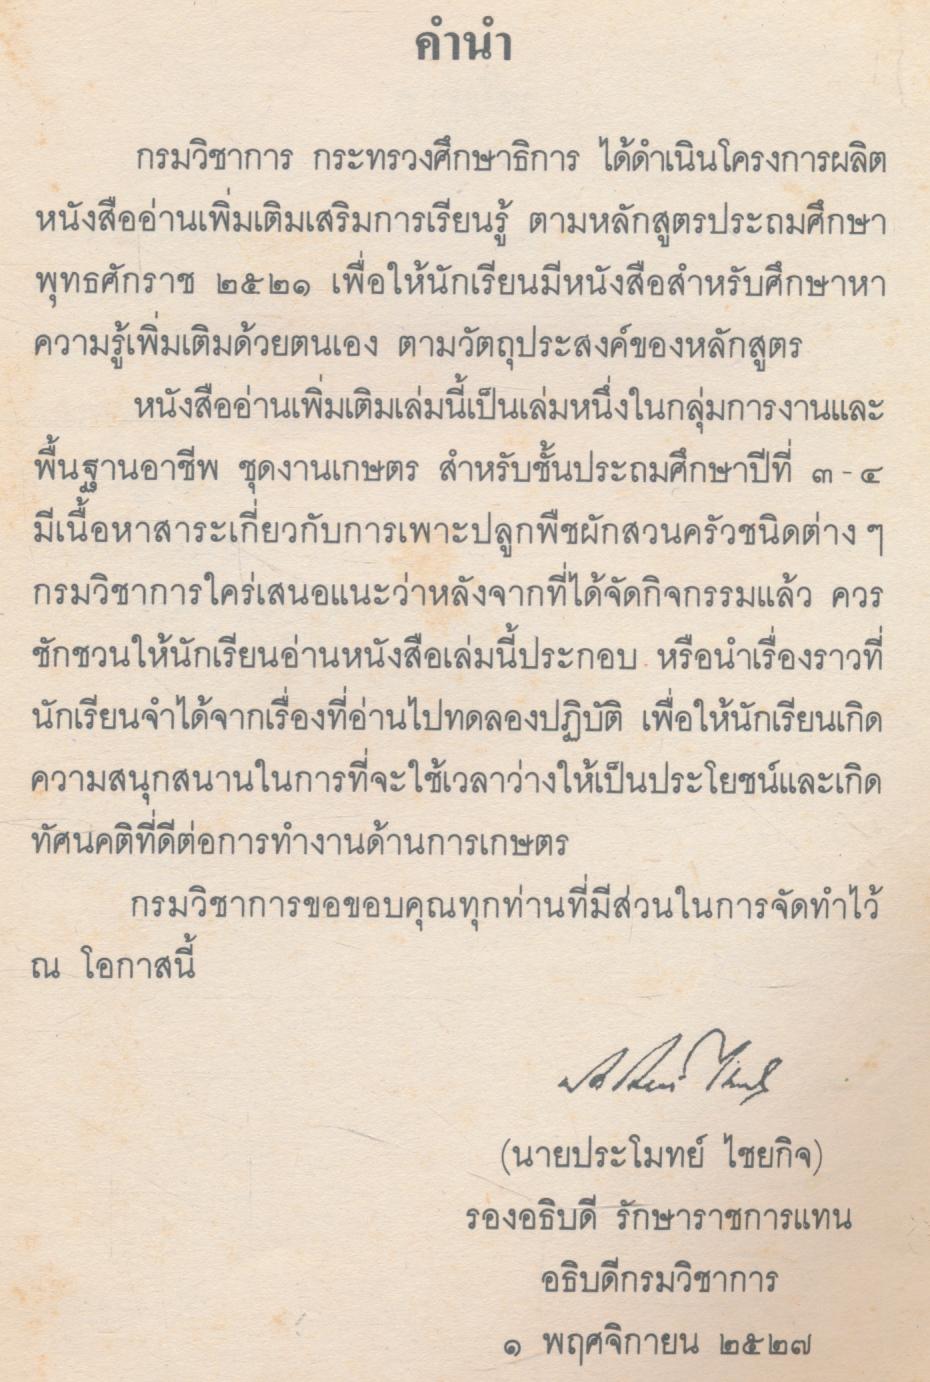 คำนำ
กรมวิชาการ กระทรวงศึกษาธิการ ได้ดำเนินโครงการผลิต
หนังสืออ่านเพิ่มเติมเสริมการเรียนรู้ ตามหลักสูตรประถมศึกษา
พุทธศักราช ๒๕๒๑ เพื่อให้นักเรียนมีหนังสือสำหรับศึกษาหา
ความรู้เพิ่มเติมด้วยตนเอง ตามวัตถุประสงค์ของหลักสูตร
หนังสืออ่านเพิ่มเติมเล่มนี้เป็นเล่มหนึ่งในกลุ่มการงานและ
พื้นฐานอาชีพ ชุดงานเกษตร สำหรับชั้นประถมศึกษาปีที่ ๓ - ๔
มีเนื้อหาสาระเกี่ยวกับการเพาะปลูกพืชผักสวนครัวชนิดต่าง ๆ
กรมวิชาการใคร่เสนอแนะว่าหลังจากที่ได้จัดกิจกรรมแล้ว ควร
ชักชวนให้นักเรียนอ่านหนังสือเล่มนี้ประกอบ หรือนำเรื่องราวที่
นักเรียนจำได้จากเรื่องที่อ่านไปทดลองปฏิบัติ เพื่อให้นักเรียนเกิด
ความสนุกสนานในการที่จะใช้เวลาว่างให้เป็นประโยชน์และเกิด
ทัศนคติที่ดีต่อการทำงานด้านการเกษตร
กรมวิชาการขอขอบคุณทุกท่านที่มีส่วนในการจัดทำไว้
ณ โอกาสนี้
(นายประโมทย์ ไชยกิจ)
รองอธิบดี รักษาราชการแทน
อธิบดีกรมวิชาการ
๑ พฤศจิกายน ๒๕๒๗